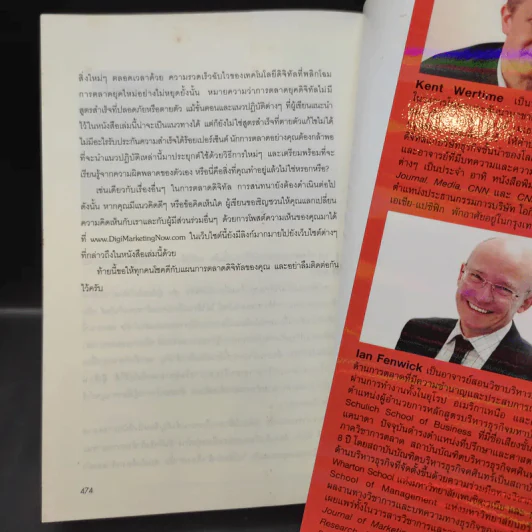 สิ่งใหม่ๆ ตลอดเวลาด้วย ความรวดเร็วฉับไวของเทคโนโลยีดิจิทัลที่พลิกโฉม
การตลาดยุคใหม่อย่างไม่หยุดยั้งนั้น หมายความว่าการตลาดยุคดิจิทัลไม่มี
สูตรสำเร็จที่ปลอดภัยหรือตายตัว แม้ขั้นตอนและแนวปฏิบัติต่างๆ ที่ผู้เขียนแนะนำ
ไว้ในหนังสือเล่มนี้น่าจะเป็นแนวทางได้ แต่ก็ยังไม่ใช่สูตรสำเร็จที่ตายตัวแก้ไขไม่ได้
ไม่มีอะไรรับประกันความสำเร็จได้ร้อยเปอร์เซ็นต์ นักการตลาดอย่างคุณต้องกล้าพอ
ที่จะนำแนวปฏิบัติเหล่านี้มาประยุกต์ใช้ด้วยวิธีการใหม่ๆ และเตรียมพร้อมที่จะ
เรียนรู้จากความผิดพลาดของตัวเอง หรือนี่คือสิ่งที่คุณทำอยู่แล้วไม่ใช่หรอกหรือ?
เช่นเดียวกับเรื่องอื่นๆ ในการตลาดดิจิทัล การสนทนายังต้องดำเนินต่อไป
ดังนั้น หากคุณมีแนวคิดดีๆ หรือข้อคิดเห็นใด ผู้เขียนขอเชิญชวนให้คุณแลกเปลี่ยน
ความคิดเห็นกับเราและกับผู้มีส่วนร่วมอื่นๆ ด้วยการโพสต์ความเห็นของคุณมาได้
ที่ www.DigiMarketingNow.com ในเว็บไซต์นี้ยังมีลิงก์มากมายไปยังเว็บไซต์ต่างๆ
ที่กล่าวถึงในหนังสือเล่มนี้ด้วย
ท้ายนี้ขอให้ทุกคนโชคดีกับแผนการตลาดดิจิทัลของคุณ และอย่าลืมติดต่อกัน
ไว้ครับ
474
Kent Wertime
และอาจารย์ที่มีบทความและความ
ต่างๆ เป็นประจำ อาทิ หนังสือ
Journal, Media, CNN และ CN
ตำแหน่งประธานกรรมการบริษัท
เอเชีย-แปซิฟิก พักอาศัยอยู่ในกรุงเท
Ian Fenwick เป็นอาจารย์สอนวิชาบริหาร
ด้านการตลาดที่มีความชำนาญและประสบการ
ผ่านการทำงานทั้งในยุโรป อเมริกาเหนือ และ
ตำแหน่งผู้อำนวยการหลักสูตรบริหารธุรกิจมหาบั
Schulich School of Business ที่มีชื่อเสียงของ
แคนาดา ปัจจุบันดำรงตำแหน่งที่ปรึกษาและ
ภาควิชาการตลาด สถาบันบัณฑิตบริหารธุรกิจ
8 ปี โดยสถาบันบัณฑิตบริหารธุรกิจ
ด้านบริหารธุรกิจที่จัดตั้งขึ้นด้วยความร่วมมือ
Wharton School แห่งมหาวิทยาลัย
School of Management แห่งมหาวิทยาลัย
ผลงานทางวิชาการและบทความทาง
เผยแพร่ทั้งในวารสารวิชาการและ
Journal of Marketing
Research,